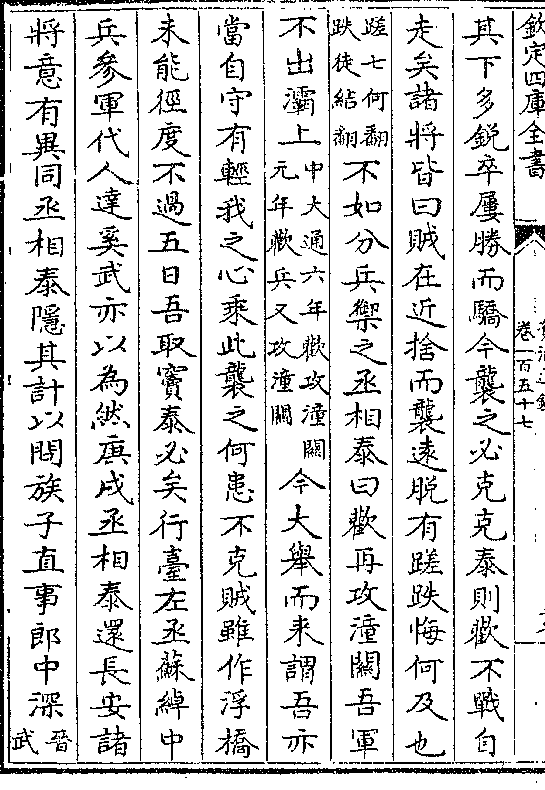 欽定四庫全書
資治通鑑
卷一百五十七
其下多銳卒屢勝而驕今襲之必克克泰則歡不戰自
走矣諸將皆曰賊在近捨而襲遠脫有蹉跌悔何及也
蹉七何翻
跌徒結翻
不如分兵禦之丞相泰曰歡再攻潼關吾軍
不出灞上
中大通六年歡攻潼關
元年歡兵又攻潼關
今大舉而来謂吾亦
當自守有輕我之心乘此襲之何患不克賊雖作浮橋
未能徑度不過五日吾取竇泰必矣行臺左丞蘇綽中
兵參軍代人達奚武亦以為然庚戌丞相泰還長安諸
將意有異同丞相泰隱其計以問族子直事郎中深
晉
武